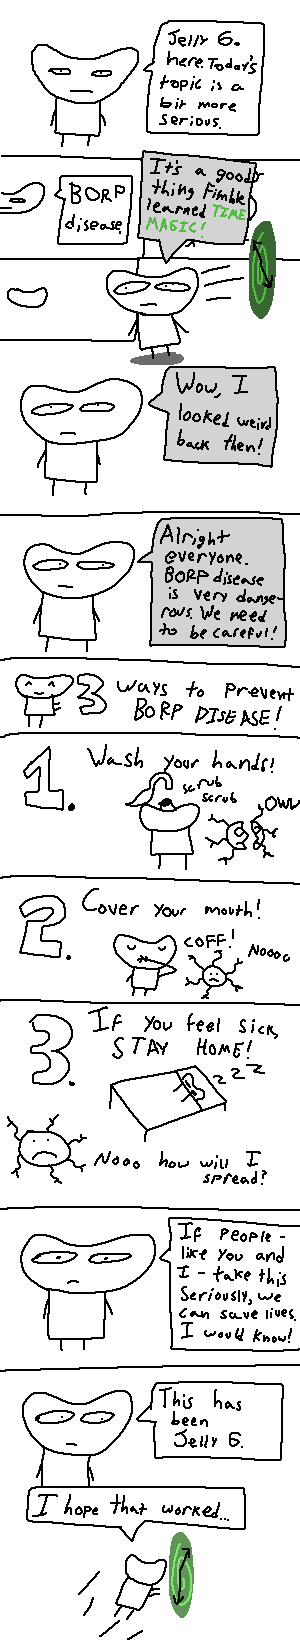 Jelly G.
here. Today's
topic is a
bit more
serious.
BORP
disease.
It's a good
thing Fimble
learned TIME
MAGIC!
Wow, I
looked weird
back then!
Alright
everyone.
BORP disease
is very dange-
rous. We need
to be careful!
3 ways to Prevent
BORP DISEASE!
1. Wash your hands!
scrub
scrub
OWW
2. Cover your mouth!
COFF!
Noooo
3. If you feel sick,
STAY HOME!
zzz
Nooo how will I
spread?
If people -
like you and
I - take this
seriously, we
can save lives.
I would know!
This has
been
Jelly G.
I hope that worked...